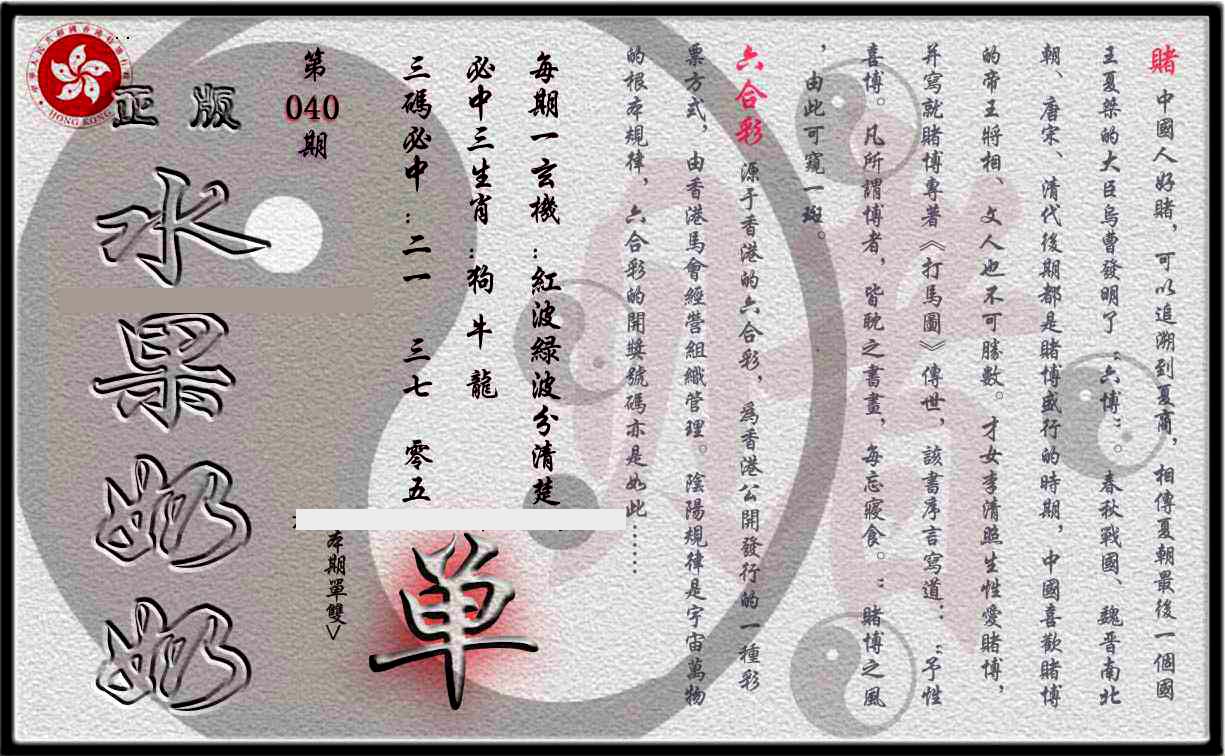 賭 中國人好賭，可以追溯到夏商，相傳夏朝最後一個國
王夏桀的大臣烏曹發明了“六博”。春秋戰國、魏晉南北
朝、唐宋、清代後期都是賭博盛行的時期，中國喜歡賭博
的帝王將相、文人也不可勝數。才女李清照生性愛賭博，
并寫就賭博專著《打馬圖》傳世，該書序言寫道：“予性
喜博。凡所謂博者，皆耽之書畫，每忘寢食。”賭博之風
，由此可窺一斑。
六合彩 源于香港的六合彩，爲香港公開發行的一種彩
票方式，由香港馬會經營組織管理。陰陽規律是宇宙萬物
的根本規律，六合彩的開獎號碼亦是如此……
每期一玄機：紅波綠波分清楚
必中三生肖：狗 牛 龍
三碼必中：二一 三七 零五
第
040
期
本期單雙
单
正版
水果奶奶
HONG KONG